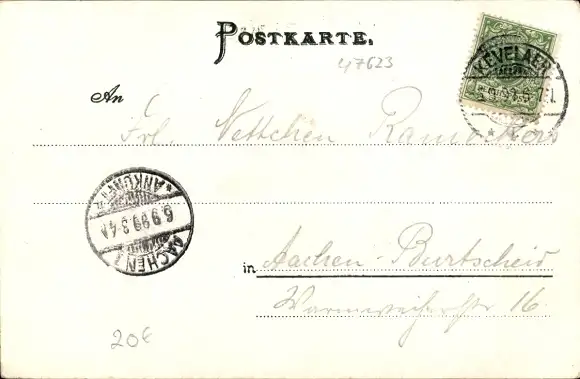 POSTKARTE.
47623
KEVELAER
An
Frl. Nettchen
AACHEN 1
6.9.99.3-4N
ANKUNFT
in Aachen-Burtscheid
16.
20€